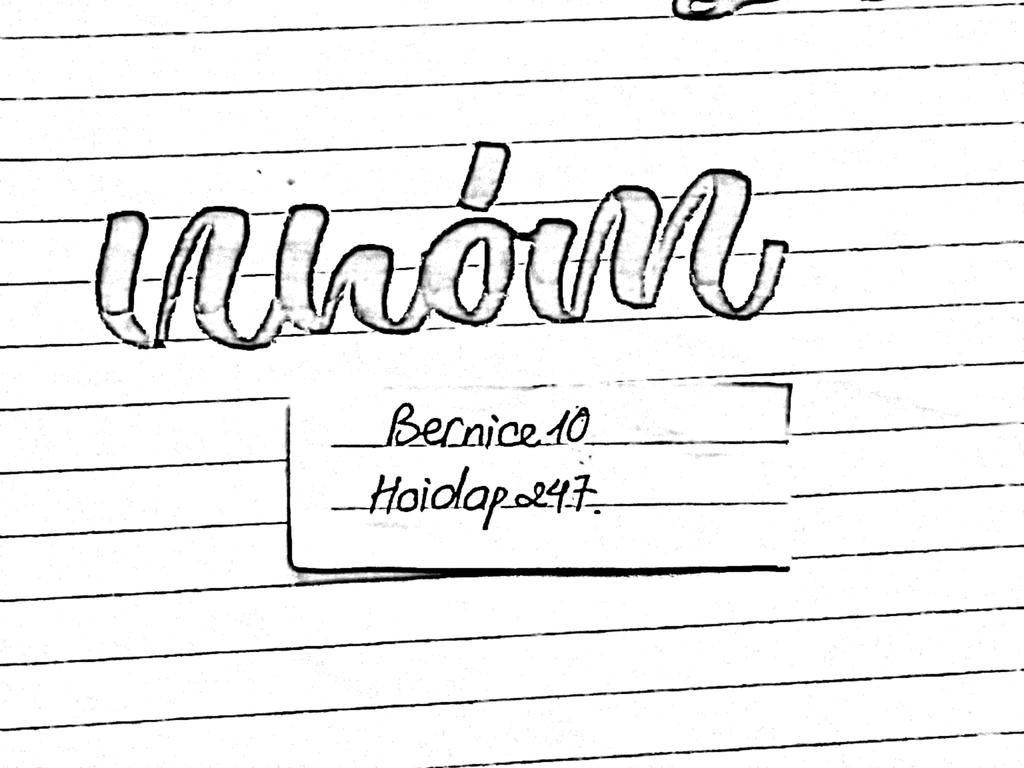 nhóm
Bernice 10
Hoidap247.